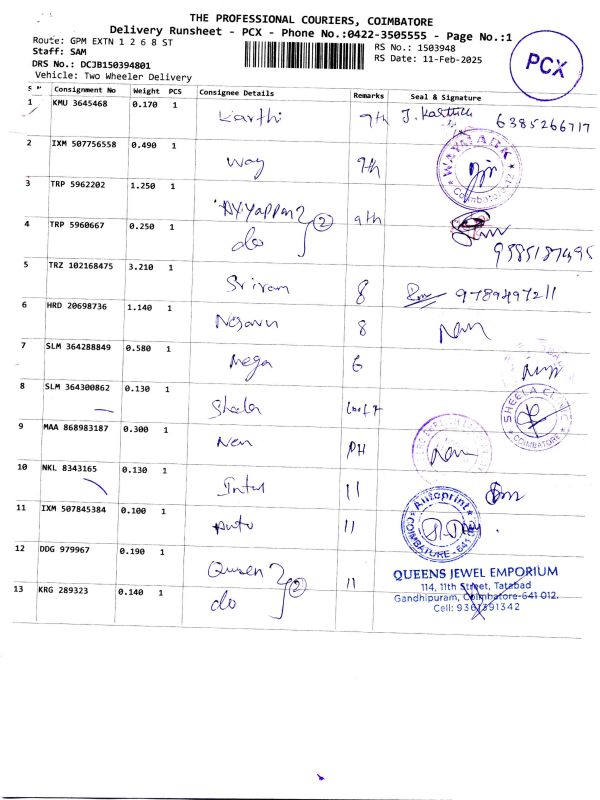 THE PROFESSIONAL COURIERS, COIMBATORE
Delivery Runsheet - PCX - Phone No.:0422-3505555 - Page No.:1
Route: GPM EXTN 1 2 6 8 ST
RS No.: 1503948
Staff: SAM
RS Date: 11-Feb-2025
DRS No.: DCJB150394801
Vehicle: Two Wheeler Delivery
PCX
Consignment No Weight PCS Consignee Details Remarks Seal & Signature
1 KMU 3645468 0.170 1 Karthi 9th J. Karthik 6385266717
2 IXM 507756558 0.490 1 Way 9th WAYMARK Coimbatore-12
3 TRP 5962202 1.250 1 Ayyappan 2 9th
4 TRP 5960667 0.250 1 do
5 TRZ 102168475 3.210 1 Sriram 8 9789497211
6 HRD 20698736 1.140 1 8
7 SLM 364288849 0.580 1 Mega 6
8 SLM 364300862 0.130 1 Sheela SHEELA COIMBATORE
9 MAA 868983187 0.300 1
10 NKL 8343165 0.130 1 11
11 IXM 507845384 0.100 1 Auto 11 Autoprint COIMBATORE-641
12 DDG 979967 0.190 1 Queen 2 11
13 KRG 289323 0.140 1 do
QUEENS JEWEL EMPORIUM
114, 11th Street, Tatabad
Gandhipuram, Coimbatore-641 012.
Cell: 9361391342